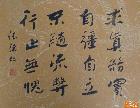 求真務實
自彊自立
不隨流弊
行止無愧